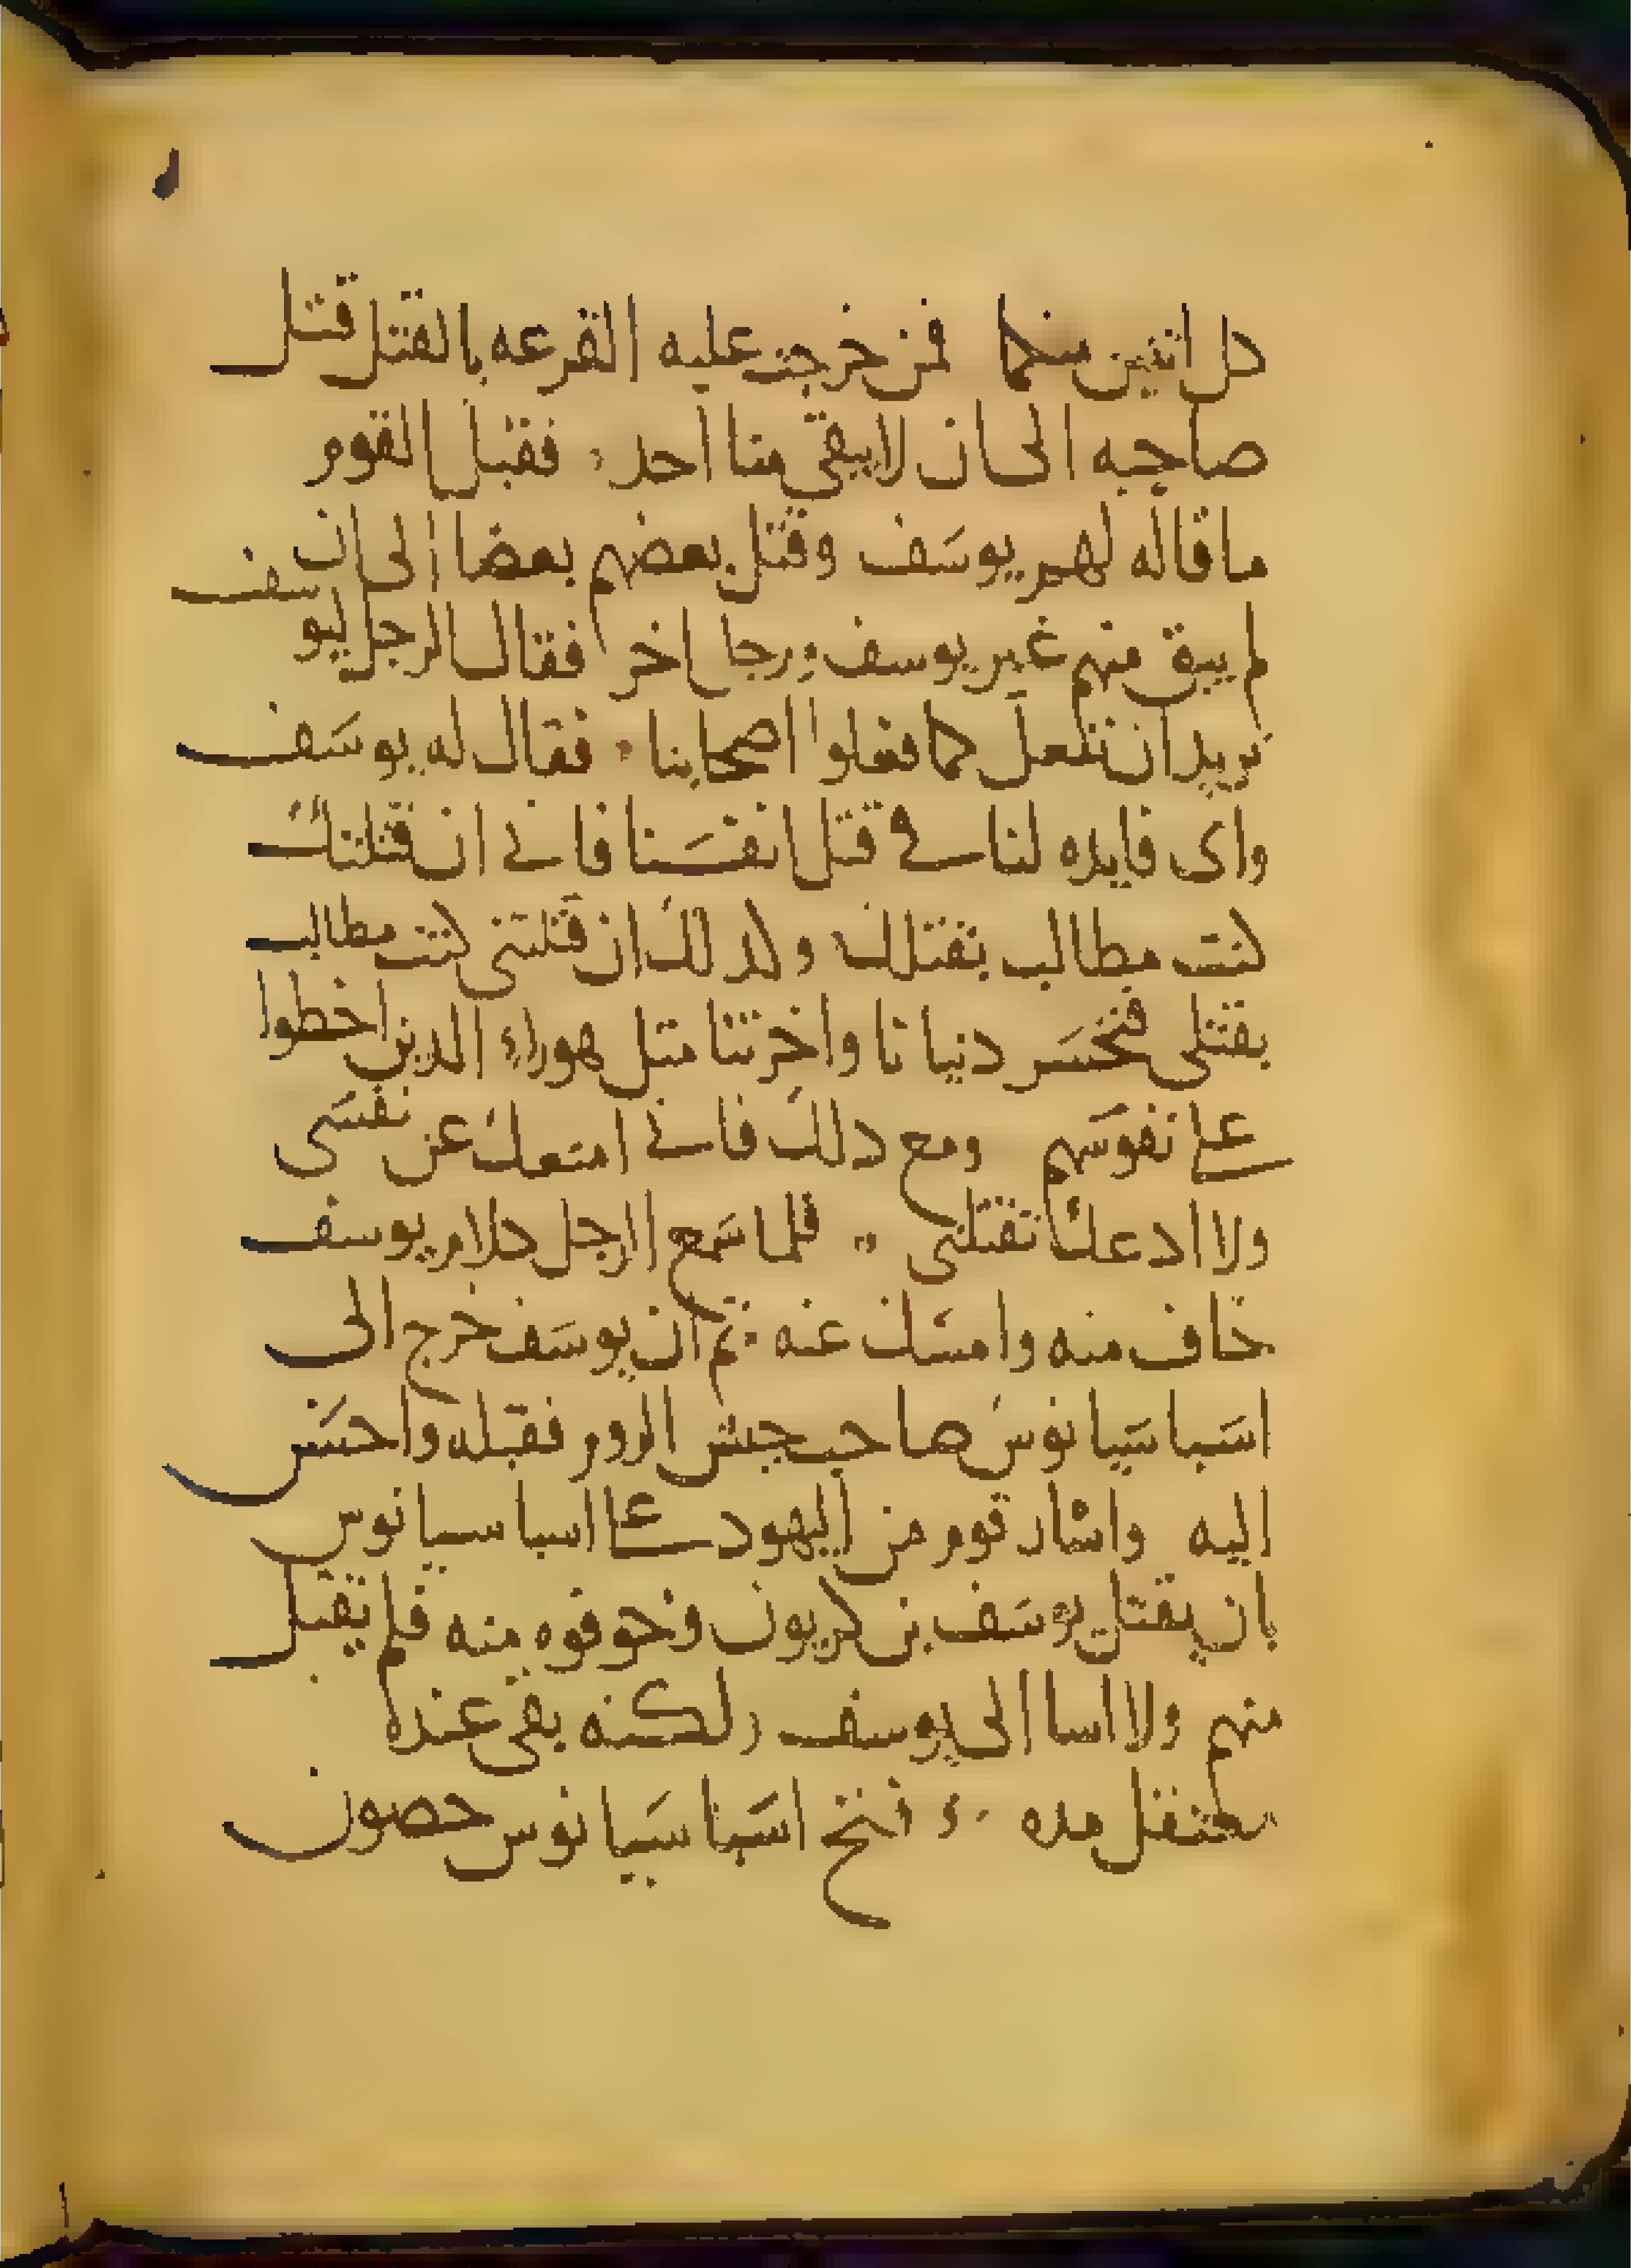 كل اتنين منهما فمن خرجت عليه القرعه بالقتل قتل
صاحبه الى ان لا يبقى منا احد فقبل القوم
ما قاله لهم يوسف وقتل بعضهم بعضا الى ان
لم يبق منهم غير يوسف ورجل اخر فقال الرجل ليوسف
نريد ان نفعل كما فعلوا اصحابنا فقال له يوسف
واى فايده لنا في قتل انفسنا فاني ان قتلتك
كنت مطالب بقتلك وكدلك ان قتلتنى كنت مطالب
بقتلى فنخسر دنيانا واخرتنا متل هوراء الدين اخطوا
على نفوسهم ومع دلك فاني امنعك عن نفسى
ولا ادعك تقتلنى فلما سمع الرجل كلام يوسف
خاف منه وامسك عنه تم ان يوسف خرج الى
اسباسيانوس صاحب جيش الروم فقبله واحسن
اليه واشار قوم من اليهود على اسباسيانوس
بان يقتل يوسف بن كريون وخوفوه منه فلم يقبل
منهم ولا اسا الى يوسف ولكنه بقى عنده
معتقل مده فتح اسباسيانوس حصون